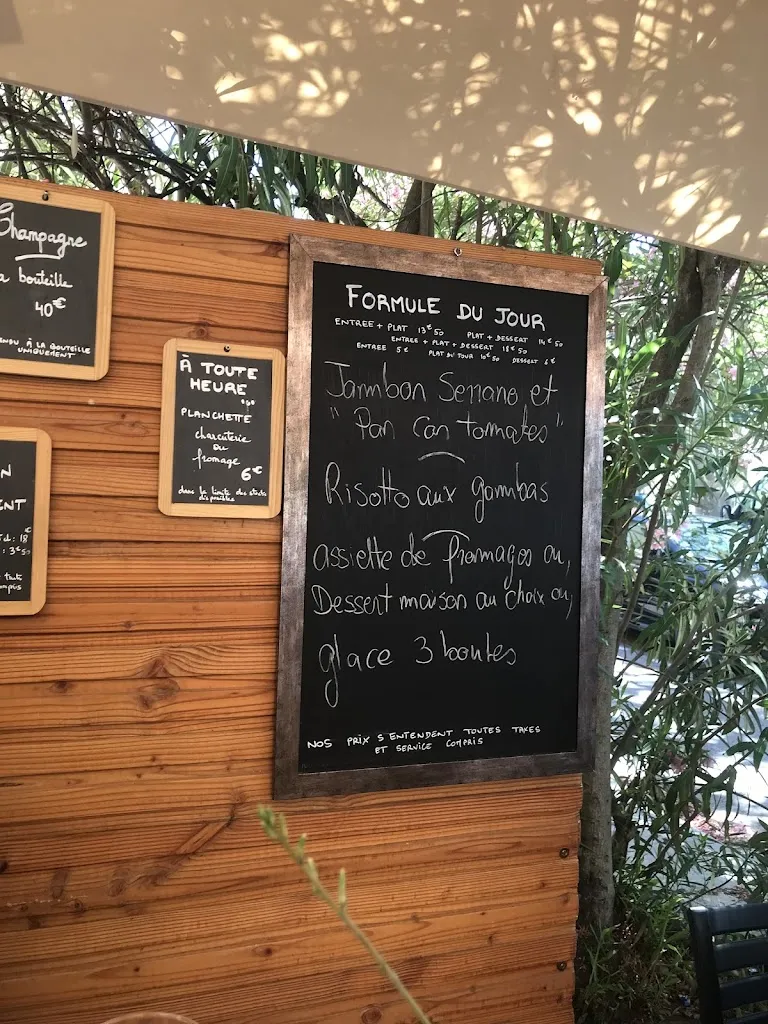 Champagne
a bouteille
40€
ENDU À LA BOUTEILLE
UNIQUEMENT
À TOUTE
HEURE
PLANCHETTE
charcuterie
ou
fromage
6€
dans la limite des stocks
disponibles
N
ENT
: 18€
: 3€50
toute
ompris
FORMULE DU JOUR
ENTREE + PLAT 13€50 PLAT + DESSERT 14€50
ENTREE + PLAT + DESSERT 18€50
ENTREE 5€ PLAT DU JOUR 10€50 DESSERT 6€
Jambon Serrano et
"Pan Con tomates"
Risotto aux gambas
assiette de fromages ou,
Dessert maison au choix ou,
glace 3 boules
NOS PRIX S'ENTENDENT TOUTES TAXES
ET SERVICE COMPRIS